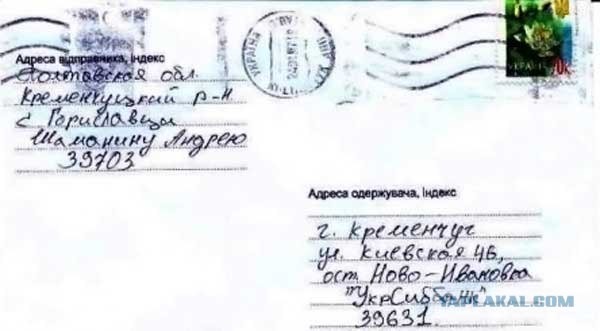 УКРАЇНА
УКРАЇНА
Адреса відправника, індекс
Полтавская обл.
Кременчуцкий р-н
с Гориславци
Шаманину Андрею
39703
Адреса одержувача, індекс
г. Кременчуг
ул. Киевская 4б,
ост Ново-Ивановка
"УкрСиббанк"
39631.
YAPLAKAL.COM